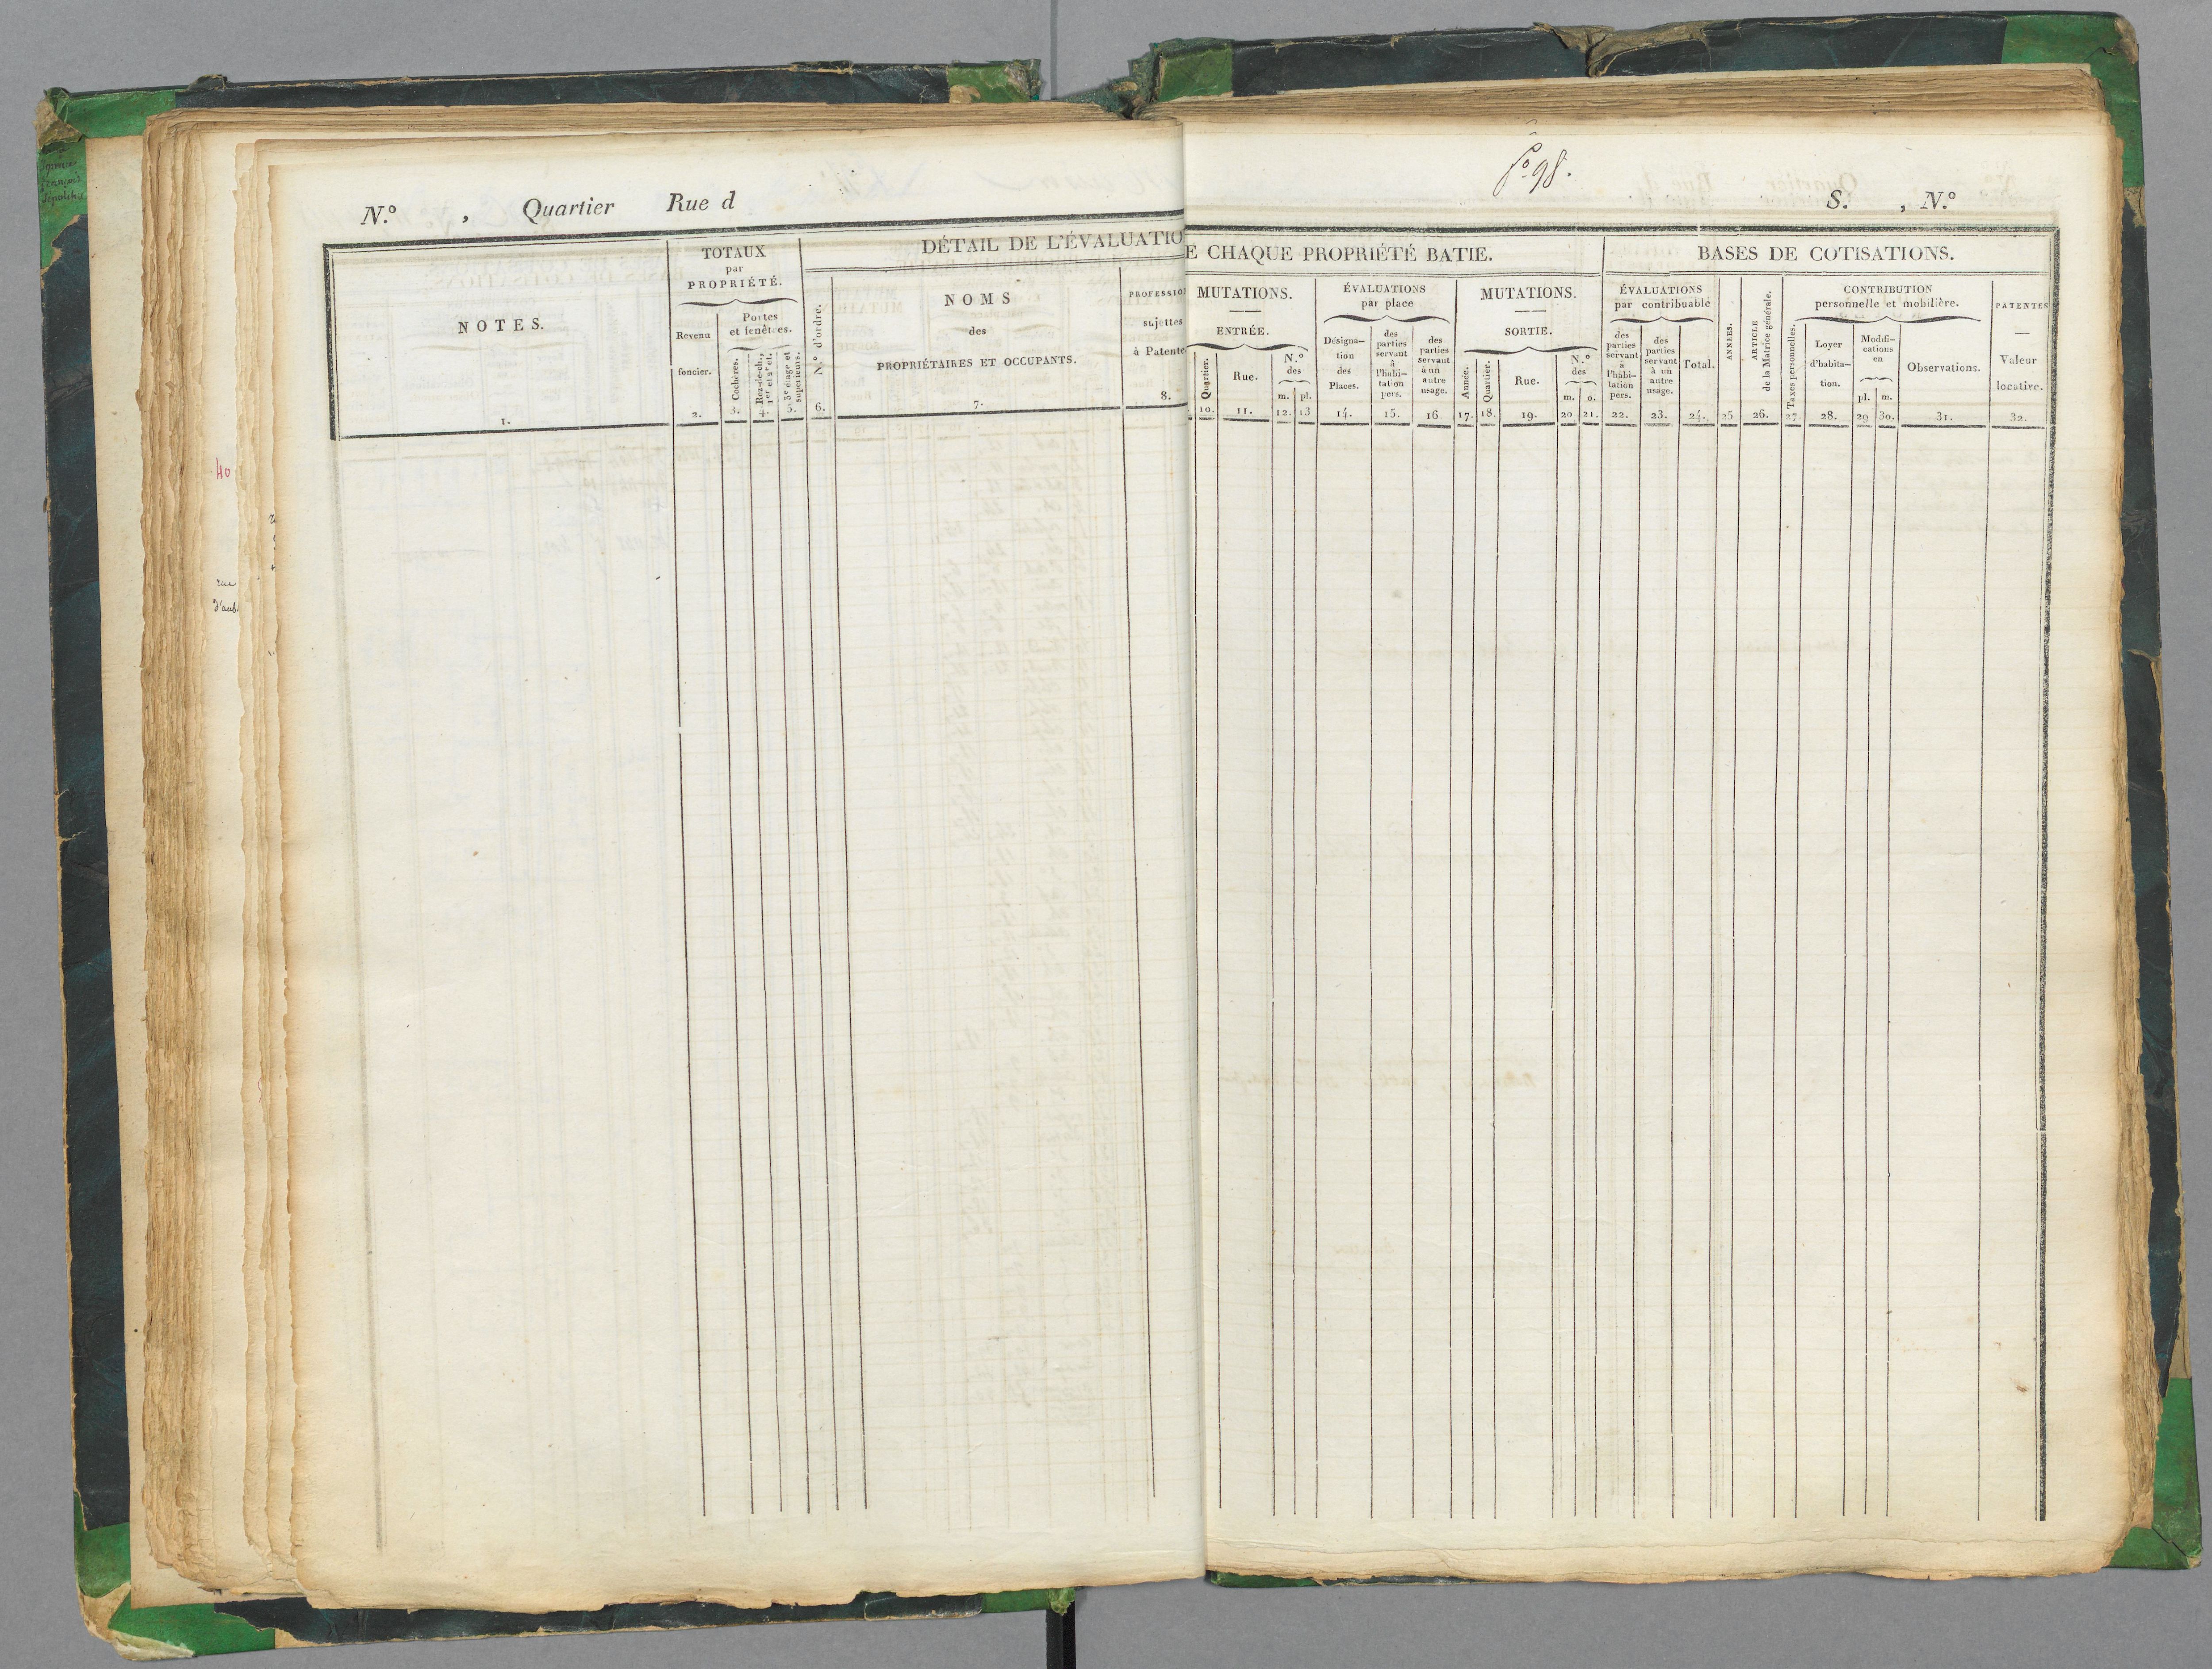 fo 98.
N.o , Quartier Rue d
S. , N.o
NOTES.
1.
TOTAUX
par
PROPRIÉTÉ.
Revenu
foncier.
2.
Portes
et fenêtres.
Cochères.
3.
Rez-de-ch.,
1er et 2e ét.
4.
3e étage et
supérieurs.
5.
DÉTAIL DE L'ÉVALUATIO
N.o d'ordre.
6.
NOMS
des
PROPRIÉTAIRES ET OCCUPANTS.
7.
PROFESSION
sujettes
à Patente
8.
E CHAQUE PROPRIÉTÉ BATIE.
MUTATIONS.
ENTRÉE.
Quartier.
10.
Rue.
11.
N.o
des
m. pl.
12. 13
ÉVALUATIONS
par place
Désigna-
tion
des
Places.
14.
des
parties
servant
à
l'habi-
tation
pers.
15.
des
parties
servant
à un
autre
usage.
16
MUTATIONS.
SORTIE.
Année.
17.
Quartier.
18.
Rue.
19.
N.o
des
m. o.
20 21.
BASES DE COTISATIONS.
ÉVALUATIONS
par contribuable
des
parties
servant
à
l'habi-
tation
pers.
22.
des
parties
servant
à un
autre
usage.
23.
Total.
24.
ANNÉES.
25
ARTICLE
de la Matrice générale.
26.
CONTRIBUTION
personnelle et mobilière.
Taxes personnelles.
27.
Loyer
d'habita-
tion.
28.
Modifi-
cations
en
pl. m.
29 30.
Observations.
31.
PATENTES
Valeur
locative.
32.
40
rue